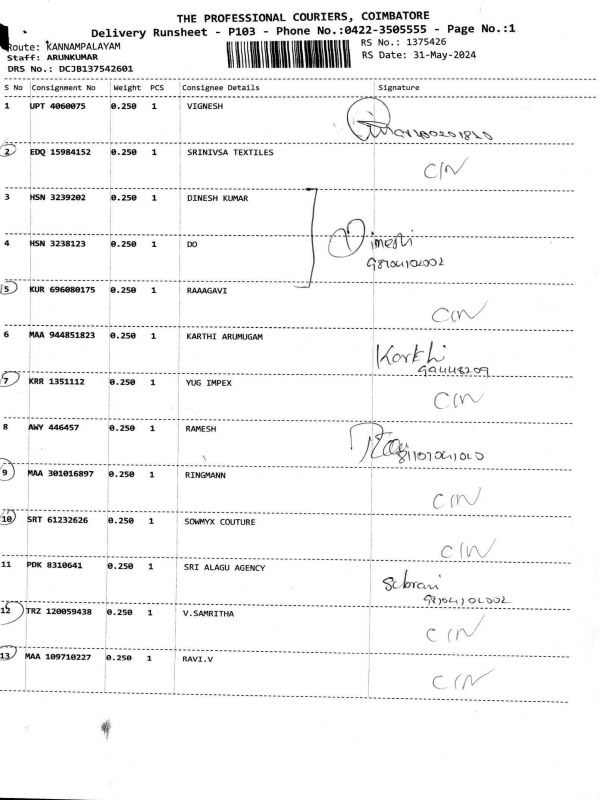 THE PROFESSIONAL COURIERS, COIMBATORE
Delivery Runsheet - P103 - Phone No.:0422-3505555 - Page No.:1
Route: KANNAMPALAYAM
RS No.: 1375426
Staff: ARUNKUMAR
RS Date: 31-May-2024
DRS No.: DCJB137542601
S No Consignment No Weight PCS Consignee Details Signature
1 UPT 4060075 0.250 1 VIGNESH
2 EDQ 15984152 0.250 1 SRINIVSA TEXTILES CIN
3 HSN 3239202 0.250 1 DINESH KUMAR
4 HSN 3238123 0.250 1 DO
5 KUR 696080175 0.250 1 RAAAGAVI CIN
6 MAA 944851823 0.250 1 KARTHI ARUMUGAM Karthi
7 KRR 1351112 0.250 1 YUG IMPEX CIN
8 AWY 446457 0.250 1 RAMESH
9 MAA 301016897 0.250 1 RINGMANN CIN
10 SRT 61232626 0.250 1 SOWMYX COUTURE CIN
11 PDK 8310641 0.250 1 SRI ALAGU AGENCY
12 TRZ 120059438 0.250 1 V.SAMRITHA CIN
13 MAA 109710227 0.250 1 RAVI.V CIN